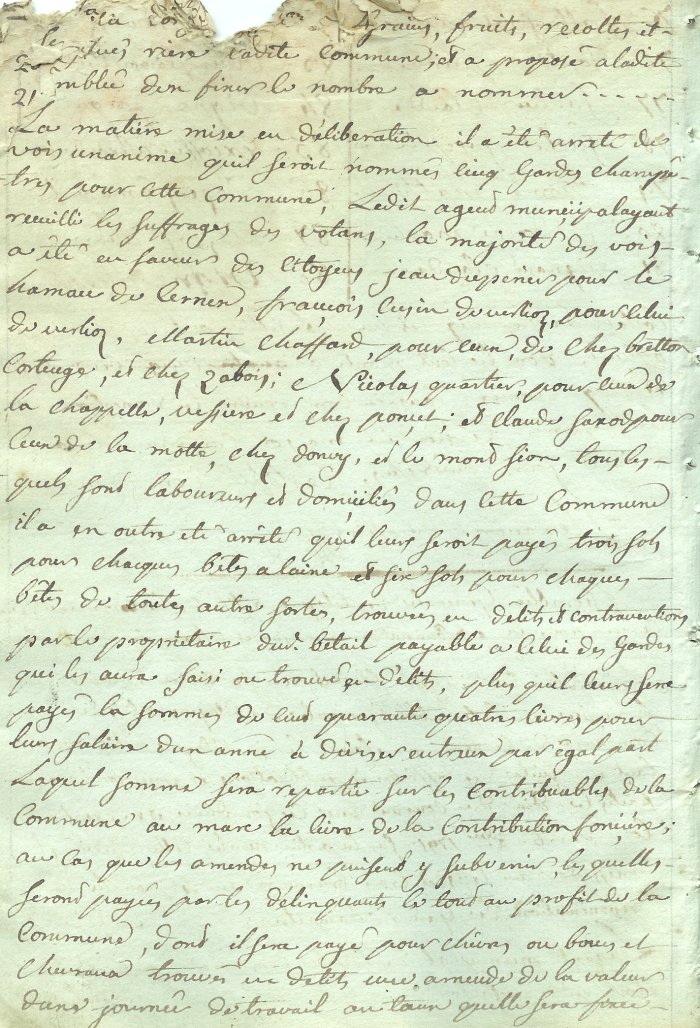 grains, fruits, recoltes et
rière ladite Commune, et a proposé a ladite
mblée den finer le nombre a nommer - - - - -
La matiére mise en déliberation il a été arreté de
vois unanime quil seroit nommés cinq Gardes champê-
tres pour cette Commune, Ledit agend municipal ayant
recuilli les suffrages des votans, la majorité des vois-
a été en faveur des Citoyens jean duperier pour le
hamau de Cernex, françois Cusin de verlioz, pour celui
de verlioz, Martin Chaffard, pour ceux, de Chez bretton
Corteuge, et chez zabois; Nicolas quartier, pour ceux de
la chappelle, vessiere et chez ponçet; et Claude saxod pour
Ceux de la motte, chez donvy, et le mond sion, tous les-
quels sond laboureurs et domiciliés dans cette Commune
il a en outre eté arrêté quil leurs seroit payés trois sols
pour chaques bêtes a laine et six sols pour chaques -
bêtes de toutes autre sortes, trouvées en délits et contraventions
par le propriétaire dud. bétail payable a Celui des Gardes
qui les aura saisi ou trouvé en délits, plus quil leurs sera
payés la sommes de cend quarante quatres livres pour
leurs salaire dun anné à diviser entreux par égal part
Laquel somme sera repartie sur les Contribuables de la
Commune au marc la livre de la Contribution fonciére;
au cas que les amendes ne puisent y subvenir, lesquelles
serond payées par les délinquants le toud au profit de la
Commune, dond il sera payé pour chévres ou boucs et
Chevraux trouvés en delits une amende de la valeur
dune journée de travail au taux quelle sera fixée -